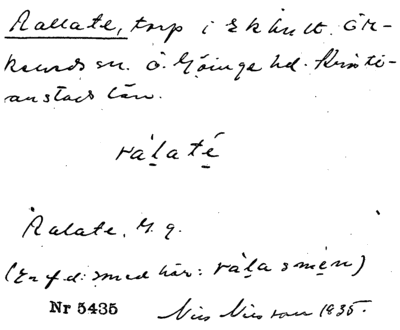 Rallate, torp i Ekhult. Ör-
keneds sn. Ö. Göinge hd. Kristi-
anstads län.
ràlaté
Ralate. G. g.
(En f.d. smed här: ràlasmèn)
Nr 5435 Nils Nilsson 1935.